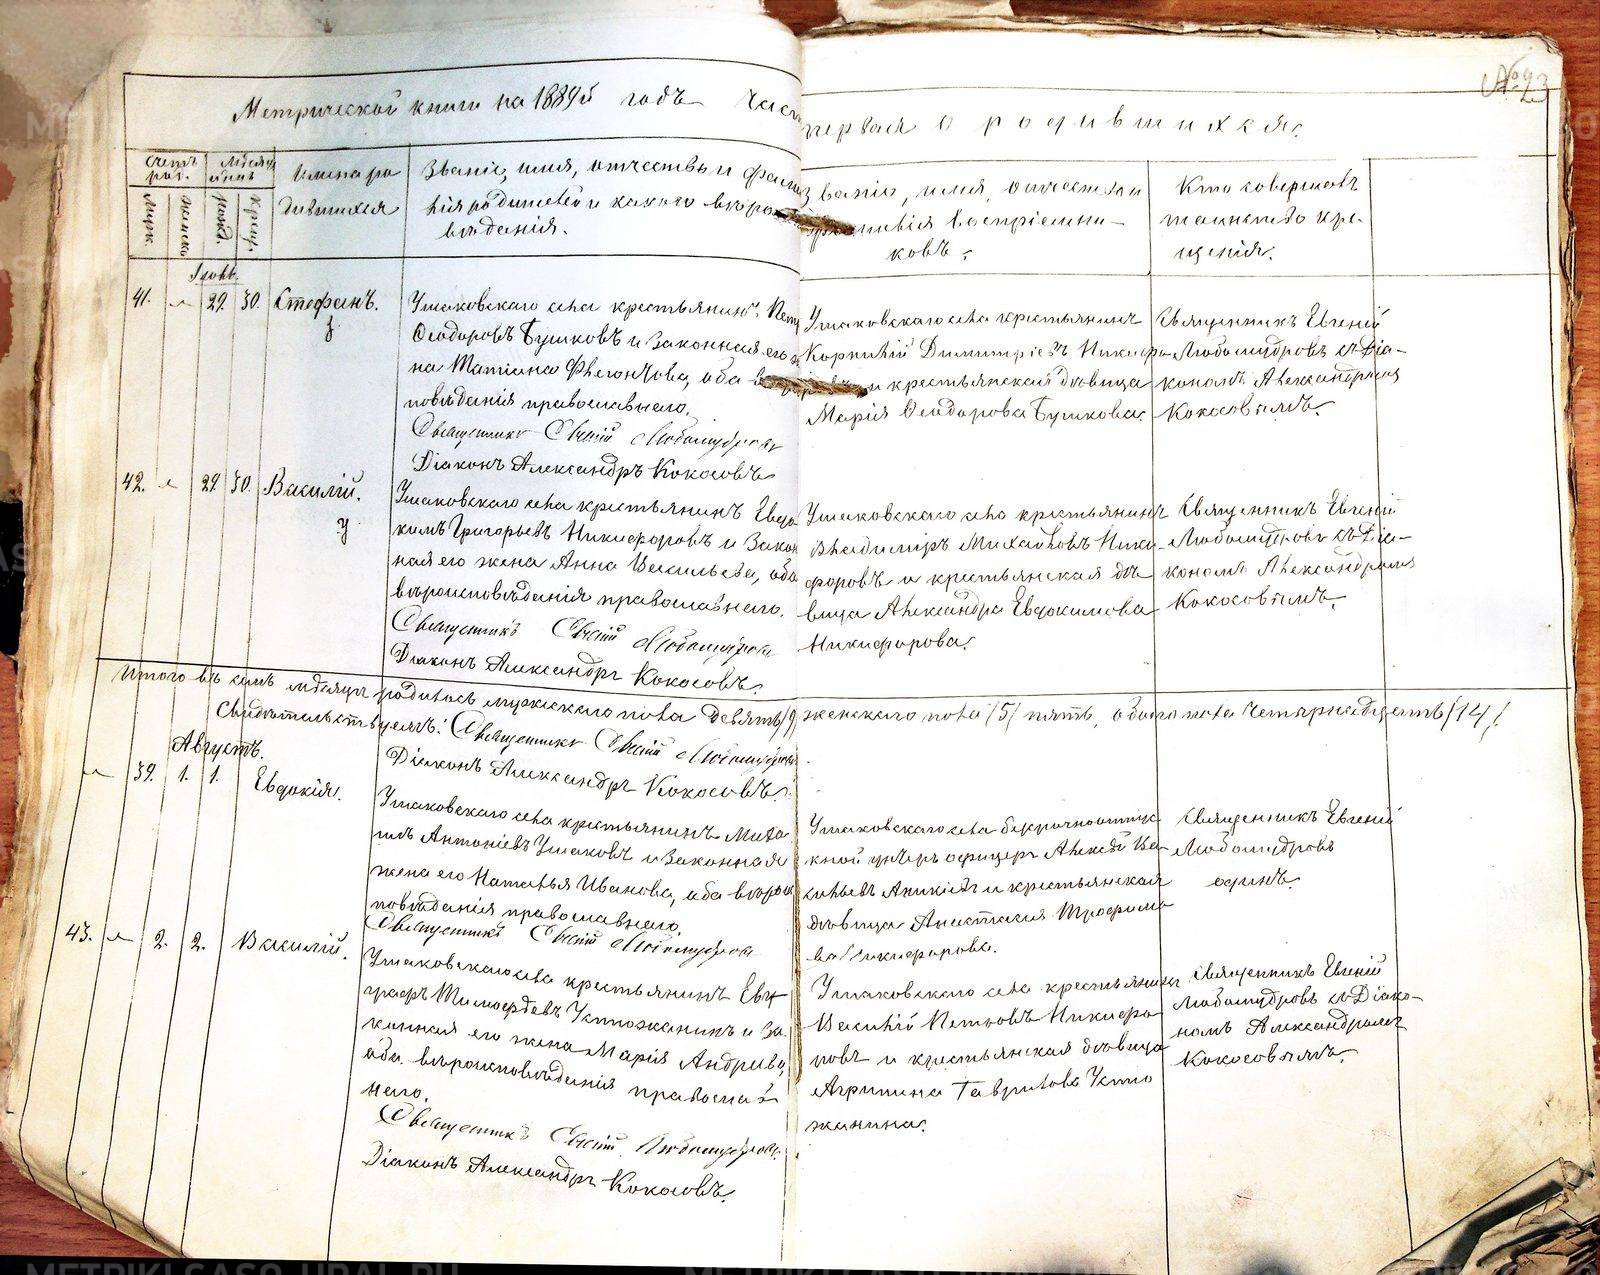 № 23
Метрической книги на 1889й годъ Часть
первая о родившихся.
Счетъ род.
Мѣсяцъ день
Имена ро
дившихся
Званіе, имя, отчество и фами
лія родителей и какого вѣроиспо
вѣданія.
Званіе, имя, отчество и
фамилія воспріемни-
ковъ.
Кто совершалъ
таинство кре-
щенія.
мужск.
женск.
рожд.
крещ.
41. 29. 30. Стефанъ.
Ушаковскаго села крестьянинъ Петр
Ѳеодоровъ Бушковъ и законная его же
на Татіана Флегонтова, оба
повѣданія православнаго.
Священникъ Евгеній Любомудровъ
Діаконъ Александръ Кокосовъ
Ушаковскаго села крестьянинъ
Корнилій Димитріевъ Никифо
и крестьянская дѣвица
Марія Ѳеодорова Бушкова.
Священникъ Евгеній
Любомудровъ съ Діа-
кономъ Александромъ
Кокосовымъ.
42. 29. 30. Василій.
Ушаковскаго села крестьянинъ Евдо
кимъ Григорьевъ Никифоровъ и закон
ная его жена Анна Васильева, оба
вѣроисповѣданія православнаго.
Священникъ Евгеній Любомудровъ
Діаконъ Александръ Кокосовъ.
Ушаковскаго села крестьянинъ
Владиміръ Михайловъ Ники-
форовъ и крестьянская дѣ
вица Александра Евдокимова
Никифорова.
Священникъ Евгеній
Любомудровъ съ Діа-
кономъ Александромъ
Кокосовымъ.
Итого въ семъ мѣсяцѣ родилось мужскаго пола девять /9/ женскаго пола /5/ пять, обоего пола четырнадцать /14/.
Свидѣтельствуемъ: Священникъ Евгеній Любомудровъ
Діаконъ Александръ Кокосовъ.
Августъ.
39. 1. 1. Евдокія.
Ушаковскаго села крестьянинъ Миха
илъ Антоніевъ Ушаковъ и законная
жена его Наталья Иванова, оба вѣроис
повѣданія православнаго.
Священникъ Евгеній Любомудровъ
Ушаковскаго села безсрочноотпус
кной унтеръ офицеръ Алексѣй Ва
сильевъ Аникіевъ и крестьянская
дѣвица Анастасія Трофимо
ва Никифорова.
Священникъ Евгеній
Любомудровъ
единъ.
43. 2. 2. Василій.
Ушаковскаго села крестьянинъ Евг
графъ Тимофеевъ Устюжанинъ и за
конная его жена Марія Андреева,
оба вѣроисповѣданія православ
наго.
Священникъ Евгеній Любомудровъ
Діаконъ Александръ Кокосовъ.
Ушаковскаго села крестьянинъ
Василій Петровъ Никифо
ровъ и крестьянская дѣвица
Агрипина Гаврилова Устю
жанина.
Священникъ Евгеній
Любомудровъ съ Діако-
номъ Александромъ
Кокосовымъ.